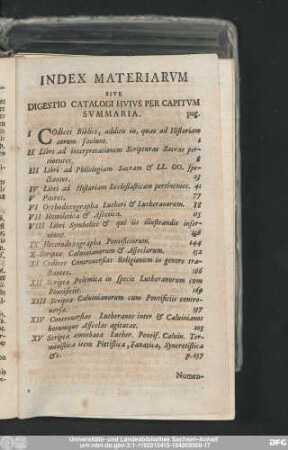 INDEX MATERIARVM
SIVE
DIGESTIO CATALOGI HVIVS PER CAPITVM
SVMMARIA. pag.
I COdices Biblici, additu iis, quae ad Historiam
eorum faciunt. 1
II Libri ad interpretationem Scripturae Sacrae per-
tinentes. 8
III Libri ad Philologiam Sacram & LL. OO. spe-
ctantes. 23
IV Libri ad Historiam Ecclesiasticam pertinentes. 41
V Patres. 77
VI Orthodoxographa Lutheri & Lutheranorum. 88
VII Homiletica & Ascetica. 115
VIII Libri Symbolici & qui iis illustrandis inser-
viunt. 138
IX Heterodoxographa Pontificiorum. 144
X Scripta Calvinianorum & Asseclarum. 152
XI Codices Controversias Religionum in genere tra-
ctantes. 166
XII Scripta Polemica in specie Lutheranorum cum
Pontificiis. 169
XIII Scripta Calvinianorum cum Pontificiis contro-
versa. 197
XIV Controversiae Lutheranos inter & Calvinianos
horumque Asseclas agitatae. 203
XV Scripta amoebaea Luther. Pontif. Calvin. Ter-
ministica item Pietistica, Fanatica, Syncretistica
&c. p. 237
Nomen-
Universitäts- und Landesbibliothek Sachsen-Anhalt